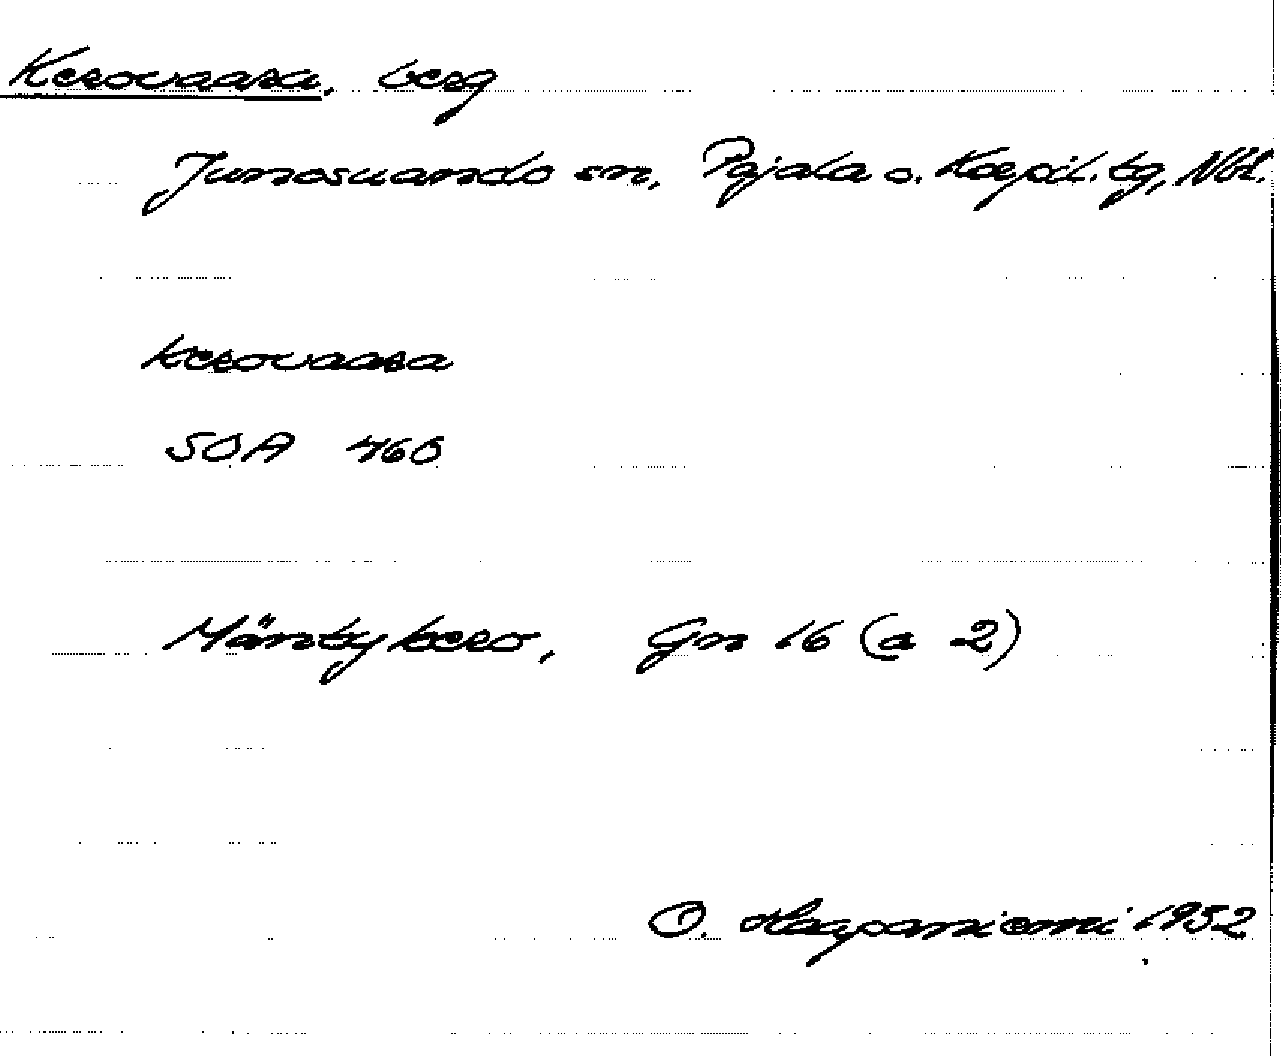 Kerovaara, berg
Junosuando sn, Pajala o. Korpil. tg, Nbl.
Kerovaara
SOA 460
Mäntykero, Gn 16 (a 2)
O. Haapaniemi 1952